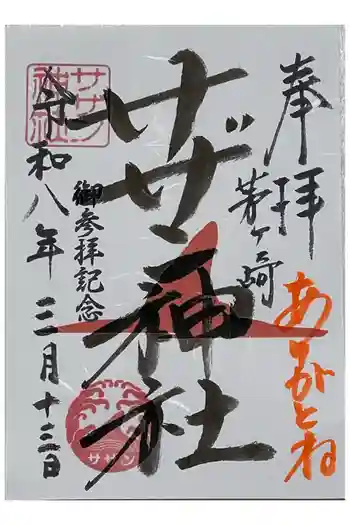 奉拝
茅ヶ崎
あ
サザン神社
御参拝記念
令和八年三月十三日
サザン
神社
サザン